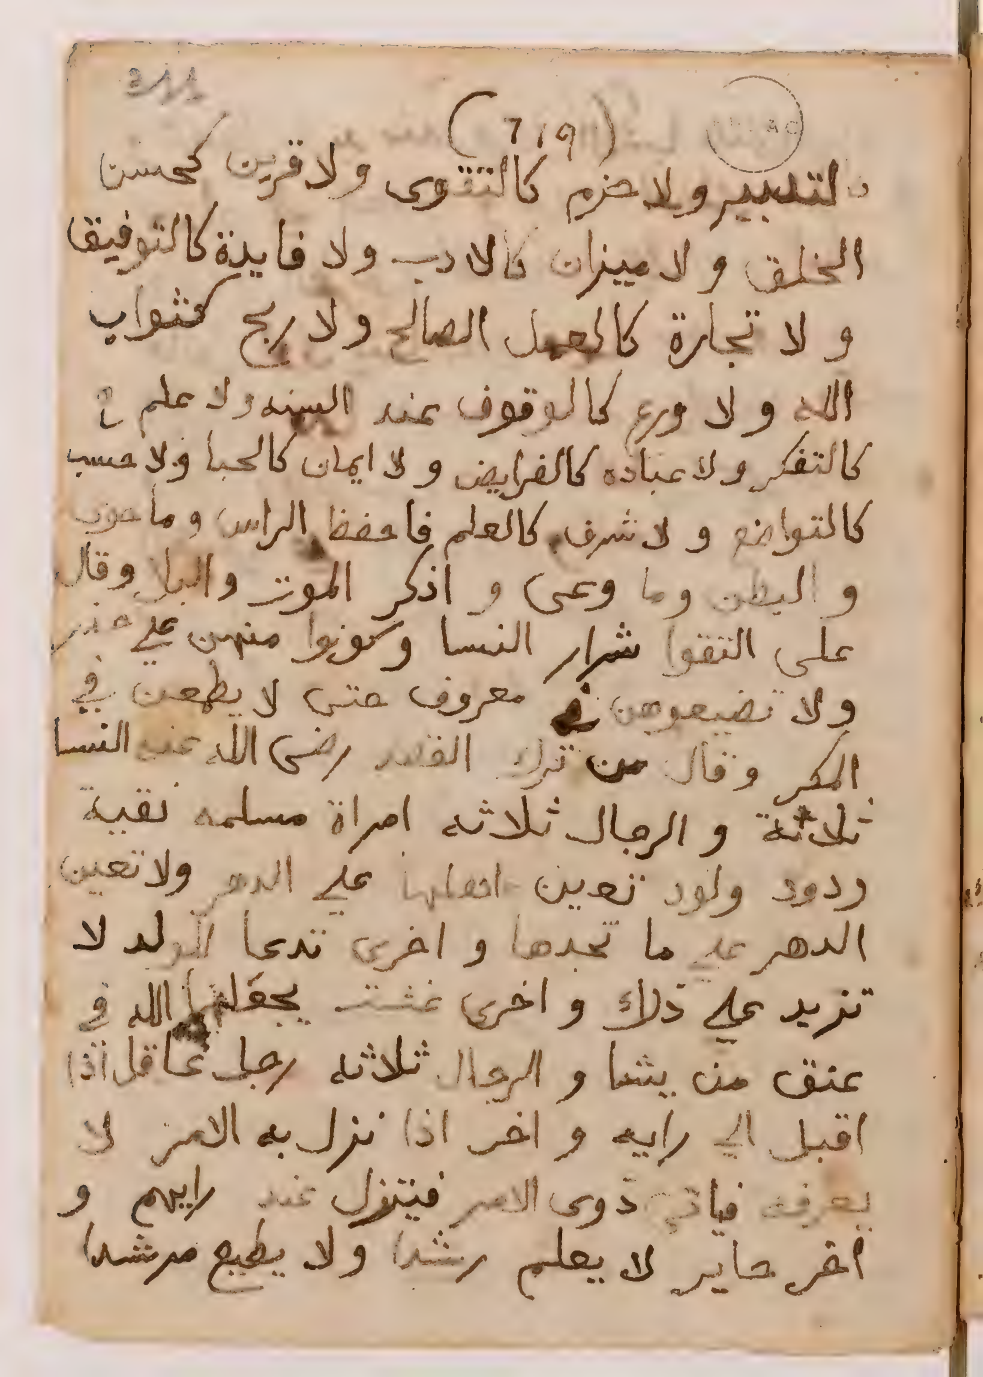 (719)
كالتدبير ولا حزم كالتقوى ولا قرين كحسن
الخلق ولا ميزان كالادب ولا فايدة كالتوفيق
ولا تجارة كالعمل الصالح ولا ربح كثواب
الله ولا ورع كالوقوف عند السنه ولا علم
كالتفكر ولا عباده كالفرايض ولا ايمان كالحيا ولا حسب
كالتواضع ولا شرف كالعلم فاحفظ الراس وما حوى
و البطن وما وعى و اذكر الموت والبلا وقال
على اتقوا شرار النسا وكونوا منهن علي حذر
ولا تضيعوهن في معروف حتى لا يطمعن في
المكر وقال من ترك القصد رضى الله عنه النسا
ثلاثة و الرجال ثلاثه امراة مسلمه نقية
ودود ولود تعين اهلها علي الدهر ولا تعين
الدهر علي ما تجدها و اخرى تدعا للولد لا
تزيد علي ذلك و اخرى يجعلها الله في
عنق من يشا و الرجال ثلاثه رجل عاقل اذا
اقبل الي رايه و اخر اذا نزل به الامر لا
يعرفه فياتي ذوى الامر فينزل عند رايهم و
اخر حاير لا يعلم رشدا ولا يطيع مرشدا